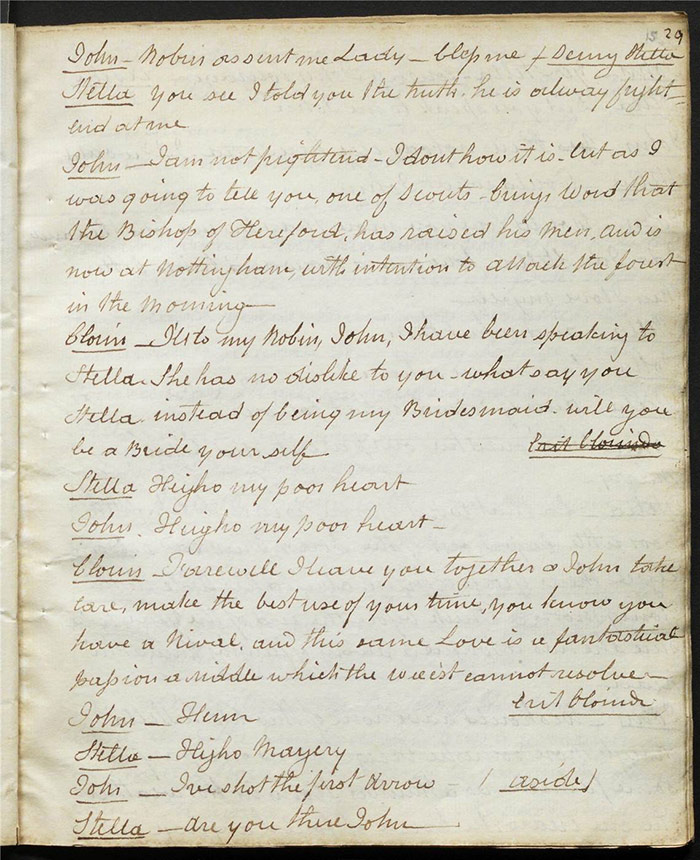 15 29
John - Robin as sent me Lady - bless me + seeing Stella
Stella you see I told you the truth. he is alway fright-
end at me
John - I am not frightend - I dont how it is - but as I
was going to tell you, one of Scouts - brings word that
the Bishop of Hereford, has raised his Men, and is
now at Nottingham, with intention to attack the forest
in the Morning -
Clorin - I'll to my Robin, John, I have been speaking to
Stella. She has no dislike to you - what say you
Stella. instead of being my Bridesmaid. will you
be a Bride your self Exit Clorinda
Stella Heigho my poor heart
John. Heigho my poor heart -
Clorin - Farewell I leave you together & John take
care, make the best use of your time, you know you
have a Rival. and this same Love is a fantastical
passion a riddle which the wisest cannot resolve -
Exit Clorinda
John - Hem
Stella - Higho
John - Ive shot the first Arrow ( aside )
Stella - are you there John